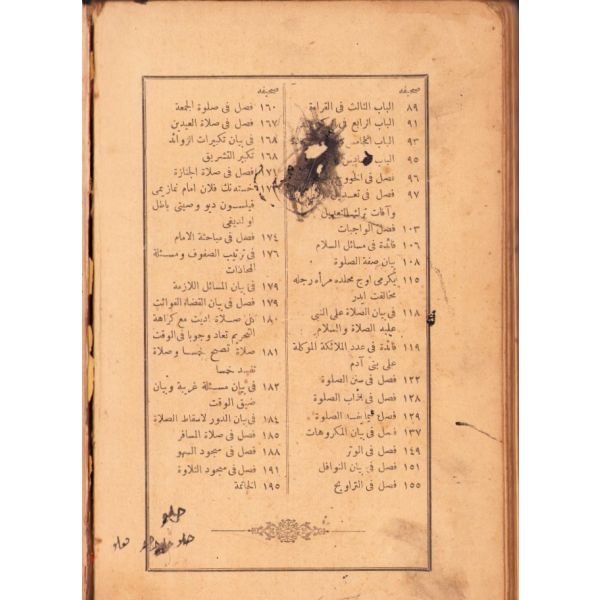 صحيفه
٨٩ الباب الثالث فى القراءة
٩١ الباب الرابع فى
٩٣ الباب
٩٥ الباب
٩٦ فصل فى
٩٧ فصل فى
وآفات
١٠٣ فصل الواجبات
١٠٦ فائدة فى مسائل السلام
١٠٨ بيان صفة الصلوة
١١٥ يكرمى اوج محلده مرأه رجله
مخالفت ايدر
١١٨ فى بيان الصلاة على النبى
عليه الصلاة والسلام
١١٩ فائدة فى عدد الملائكة الموكلة
على بنى آدم
١٢٢ فصل فى سنن الصلوة
١٢٨ فصل فى آداب الصلوة
١٢٩ فصل فيما يفسد الصلوة
١٣٧ فصل فى بيان المكروهات
١٤٩ فصل فى الوتر
١٥١ فصل فى بيان النوافل
١٥٥ فصل فى التراويح
صحيفه
١٦٠ فصل فى صلوة الجمعة
١٦٧ فصل فى صلاة العيدين
١٦٨ فى بيان تكبيرات الزوائد
١٦٨ تكبير التشريق
١٧١ فصل فى صلاة الجنازة
خسته نك فلان امام نمازيمى
قيلسون ديو وصيتى باطل
اولديغى
١٧٤ فصل فى مباحثة الامام
١٧٦ فى ترتيب الصفوف ومسئلة
المحاذات
١٧٩ فى بيان المسائل اللازمة
١٧٩ فصل فى بيان القضاء الفوائت
١٨٠ كل صلاة اديت مع كراهة
التحريم تعاد وجوبا فى الوقت
١٨١ صلاة تصحح خمسا وصلاة
تفسد خمسا
١٨٢ فى بيان مسئلة غريبة وبيان
ضيق الوقت
١٨٤ فى بيان الدور لاسقاط الصلاة
١٨٥ فصل فى صلاة المسافر
١٨٨ فصل فى سجود السهو
١٩١ فصل فى سجود التلاوة
١٩٥ الخاتمة